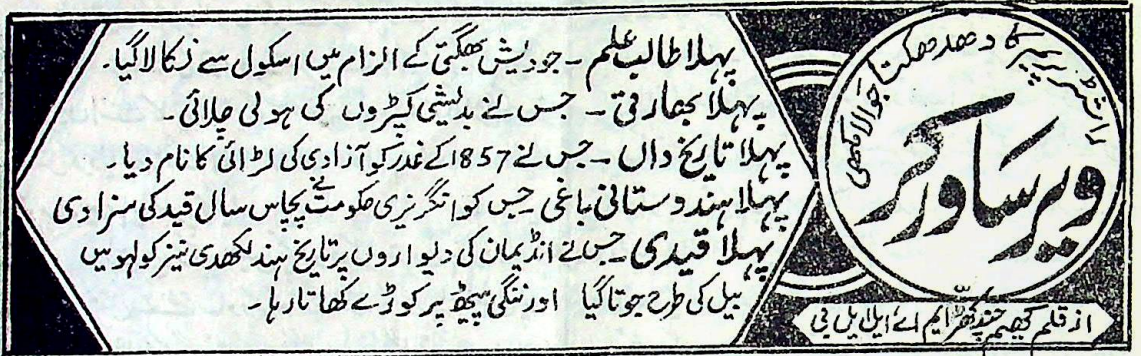 راشٹر پریم کا دھدھکتا جوالا مکھی
ویر ساورکر
از قلم بھیم چند کھٹر ایم اے ایل ایل بی
پہلا طالب علم ۔ جو دیش بھگتی کے الزام میں اسکول سے نکالا گیا۔
پہلا بھارتی ۔ جس نے بدیشی کپڑوں کی ہولی جلائی۔
پہلا تاریخ داں ۔ جس نے 1857 کے غدر کو آزادی کی لڑائی کا نام دیا۔
پہلا ہندوستانی باغی ۔ جس کو انگریزی حکومت نے پچاس سال قید کی سزا دی
پہلا قیدی ۔ جس نے انڈیمان کی دیواروں پر تاریخ ہند لکھدی نیز کولہو میں
بیل کی طرح جوتا گیا اور ننگی پیٹھ پر کوڑے کھاتا رہا۔